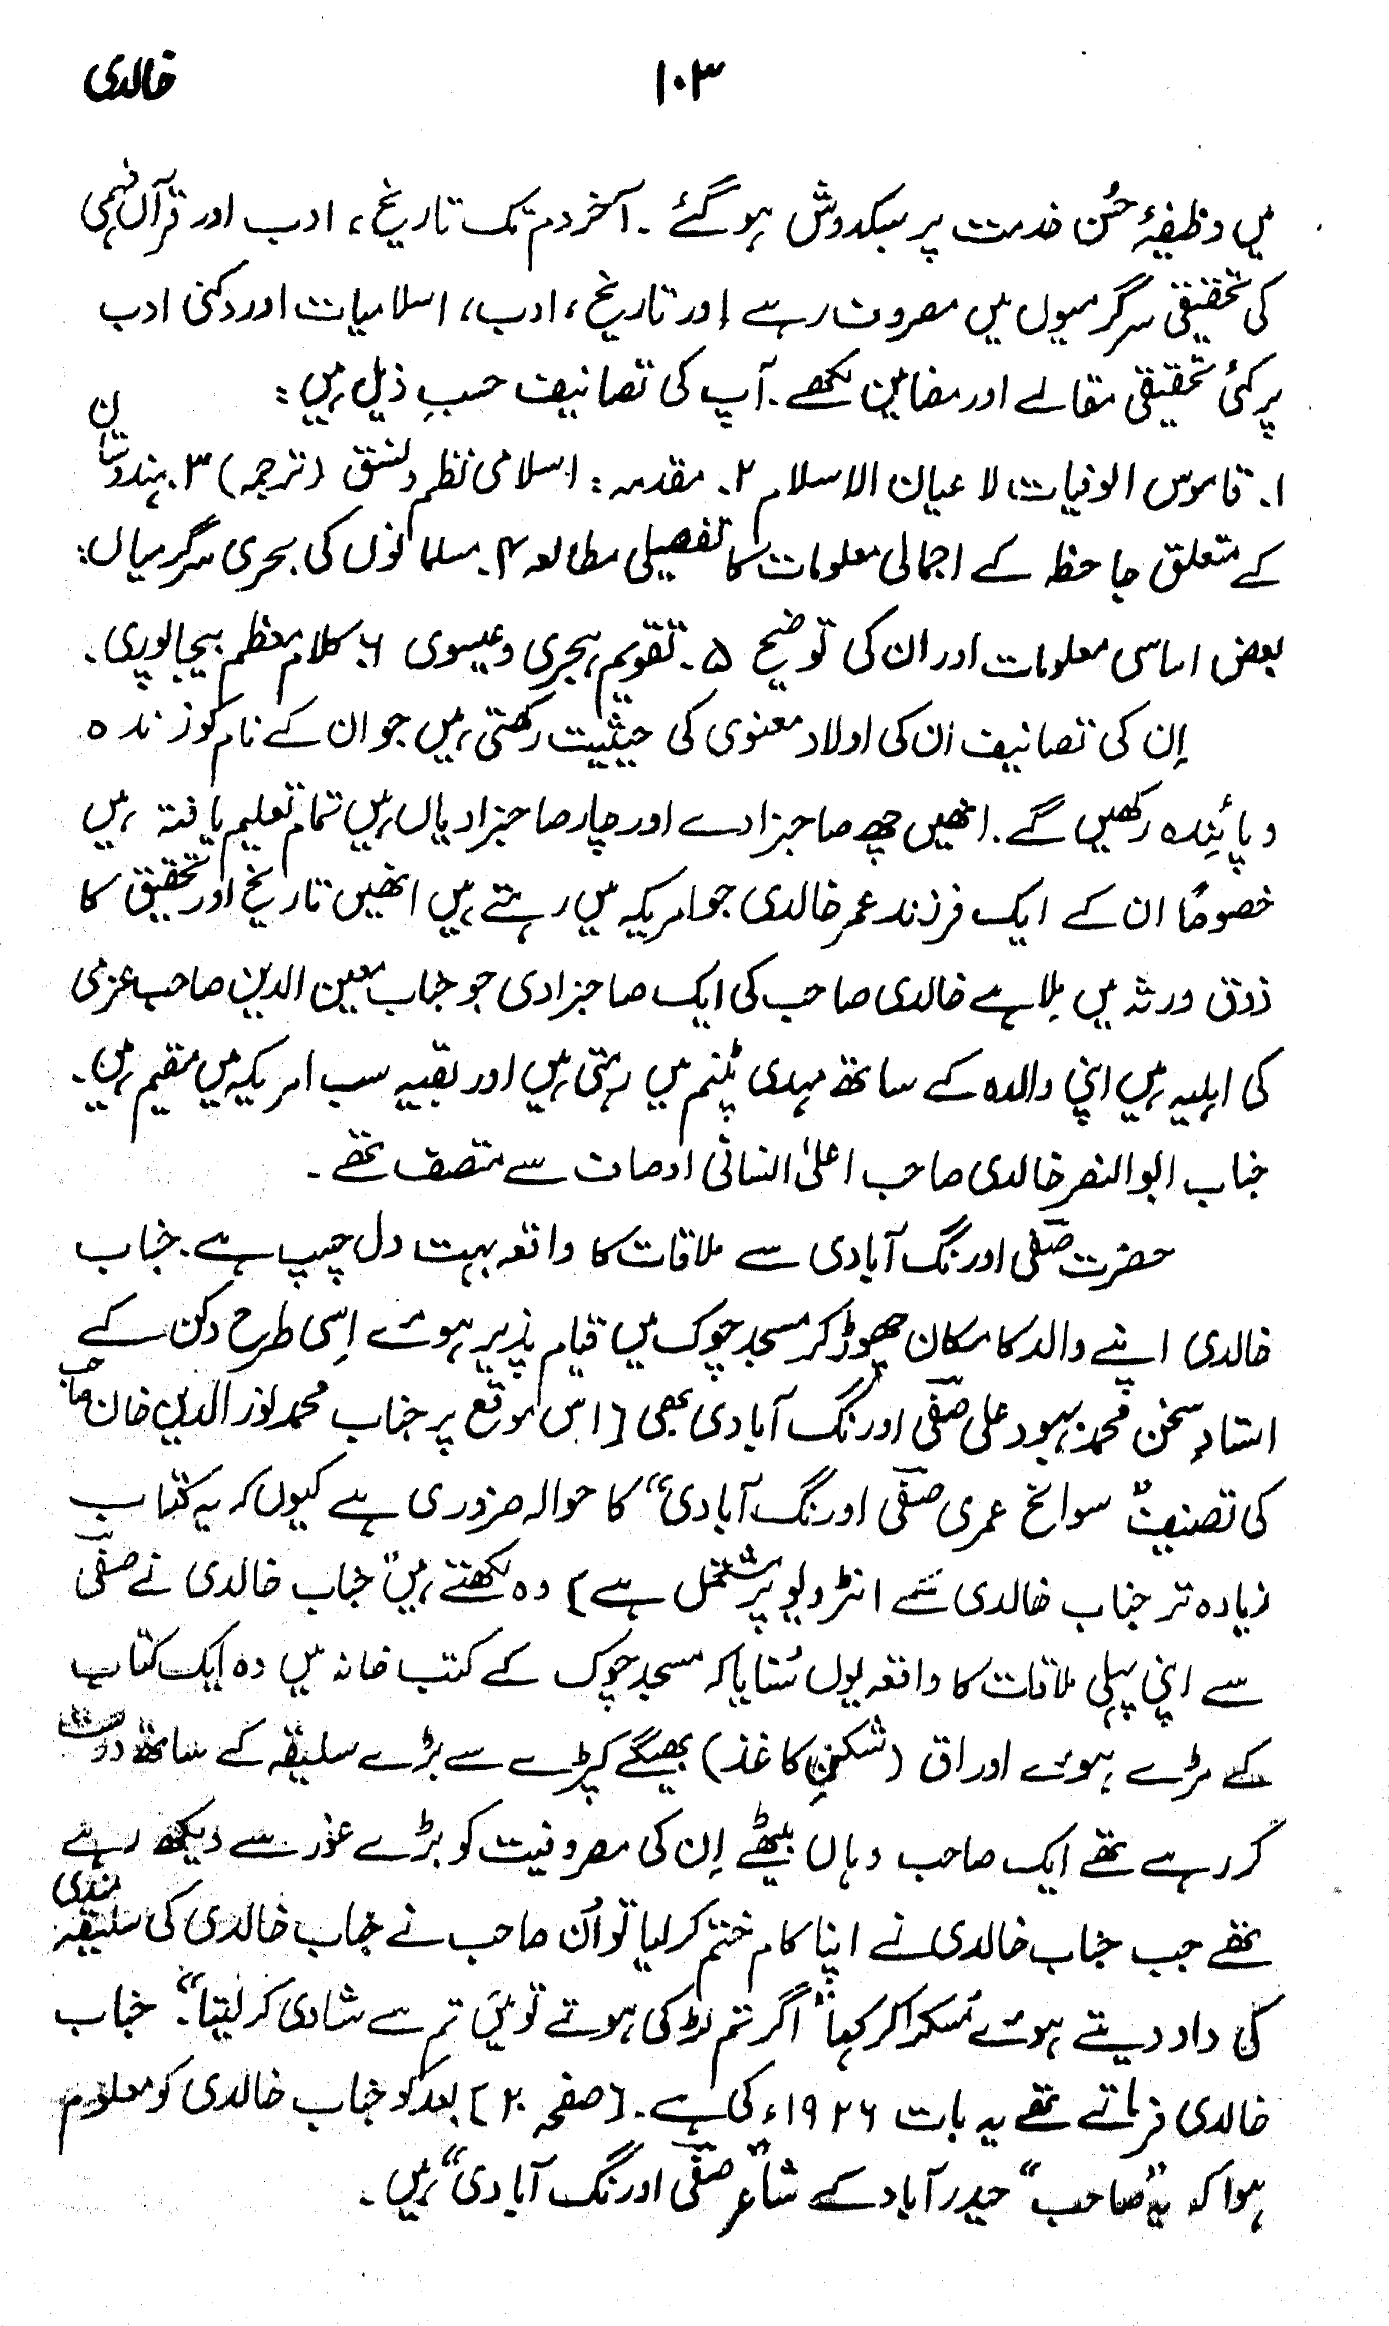 خالدی
۱۰۳
میں وظیفۂ حُسن خدمت پر سبکدوش ہوگئے ۔ آخر دم تک تاریخ ، ادب اور قرآن فہمی
کی تحقیقی سرگرمیوں میں مصروف رہے اور تاریخ ، ادب ، اسلامیات اور دکنی ادب
پر کئی تحقیقی مقالے اور مضامین لکھے ۔ آپ کی تصانیف حسبِ ذیل ہیں :
۱۔ قاموس الوفیات لاعیان الاسلام ۲۔ مقدمہ : اسلامی نظم ونسق (ترجمہ) ۳۔ ہندوستان
کے متعلق جاحظ کے اجمالی معلومات کا تفصیلی مطالعہ ۴۔ مسلمانوں کی بحری سرگرمیاں :
بعض اساسی معلومات اور ان کی توضیح ۵۔ تقویم ہجری وعیسوی ۶۔ کلام معظم بیجاپوری ۔
اِن کی تصانیف ان کی اولاد معنوی کی حیثیت رکھتی ہیں جو ان کے نام کو زندہ
وپائندہ رکھیں گے ۔ انھیں چھ صاحبزادے اور چار صاحبزادیاں ہیں تمام تعلیم یافتہ ہیں
خصوصاً ان کے ایک فرزند عمر خالدی جو امریکہ میں رہتے ہیں انھیں تاریخ اور تحقیق کا
ذوق ورثہ میں ملا ہے خالدی صاحب کی ایک صاحبزادی جو جناب معین الدین صاحب عزمی
کی اہلیہ ہیں اپنی والدہ کے ساتھ مہدی پٹنم میں رہتی ہیں اور بقیہ سب امریکہ میں مقیم ہیں ۔
جناب ابوالنصر خالدی صاحب اعلیٰ انسانی اوصاف سے متصف تھے ۔
حضرت صفی اورنگ آبادی سے ملاقات کا واقعہ بہت دل چسپ ہے ۔ جناب
خالدی اپنے والد کا مکان چھوڑ کر مسجد چوک میں قیام پذیر ہوئے اِسی طرح دکن کے
استادِ سخن محمد بہبود علی صفی اورنگ آبادی بھی [اس موقع پر جناب محمد نور الدین خان صاحب
کی تصنیف " سوانح عمری صفی اورنگ آبادی " کا حوالہ ضروری ہے کیوں کہ یہ کتاب
زیادہ تر جناب خالدی سے انٹرویو پر مشتمل ہے ] وہ لکھتے ہیں " جناب خالدی نے صفی
سے اپنی پہلی ملاقات کا واقعہ یوں سُنایا کہ مسجد چوک کے کتب خانہ میں وہ ایک کتاب
کے مڑے ہوئے اوراق (شکنِ کاغذ) بھیگے کپڑے سے بڑے سلیقہ کے ساتھ درست
کر رہے تھے ایک صاحب وہاں بیٹھے اِن کی مصروفیت کو بڑے غور سے دیکھ رہے
تھے جب جناب خالدی نے اپنا کام ختم کرلیا تو اُن صاحب نے جناب خالدی کی سلیقہ مندی
کی داد دیتے ہوئے مُسکرا کر کہا " اگر تم لڑکی ہوتے تو میں تم سے شادی کرلیتا "۔ جناب
خالدی فرماتے تھے یہ بات ۱۹۲۶ء کی ہے ۔ [صفحہ ۲۰] بعد کو جناب خالدی کو معلوم
ہوا کہ یہ "صاحب" حیدرآباد کے شاعر " صفی اورنگ آبادی " ہیں ۔